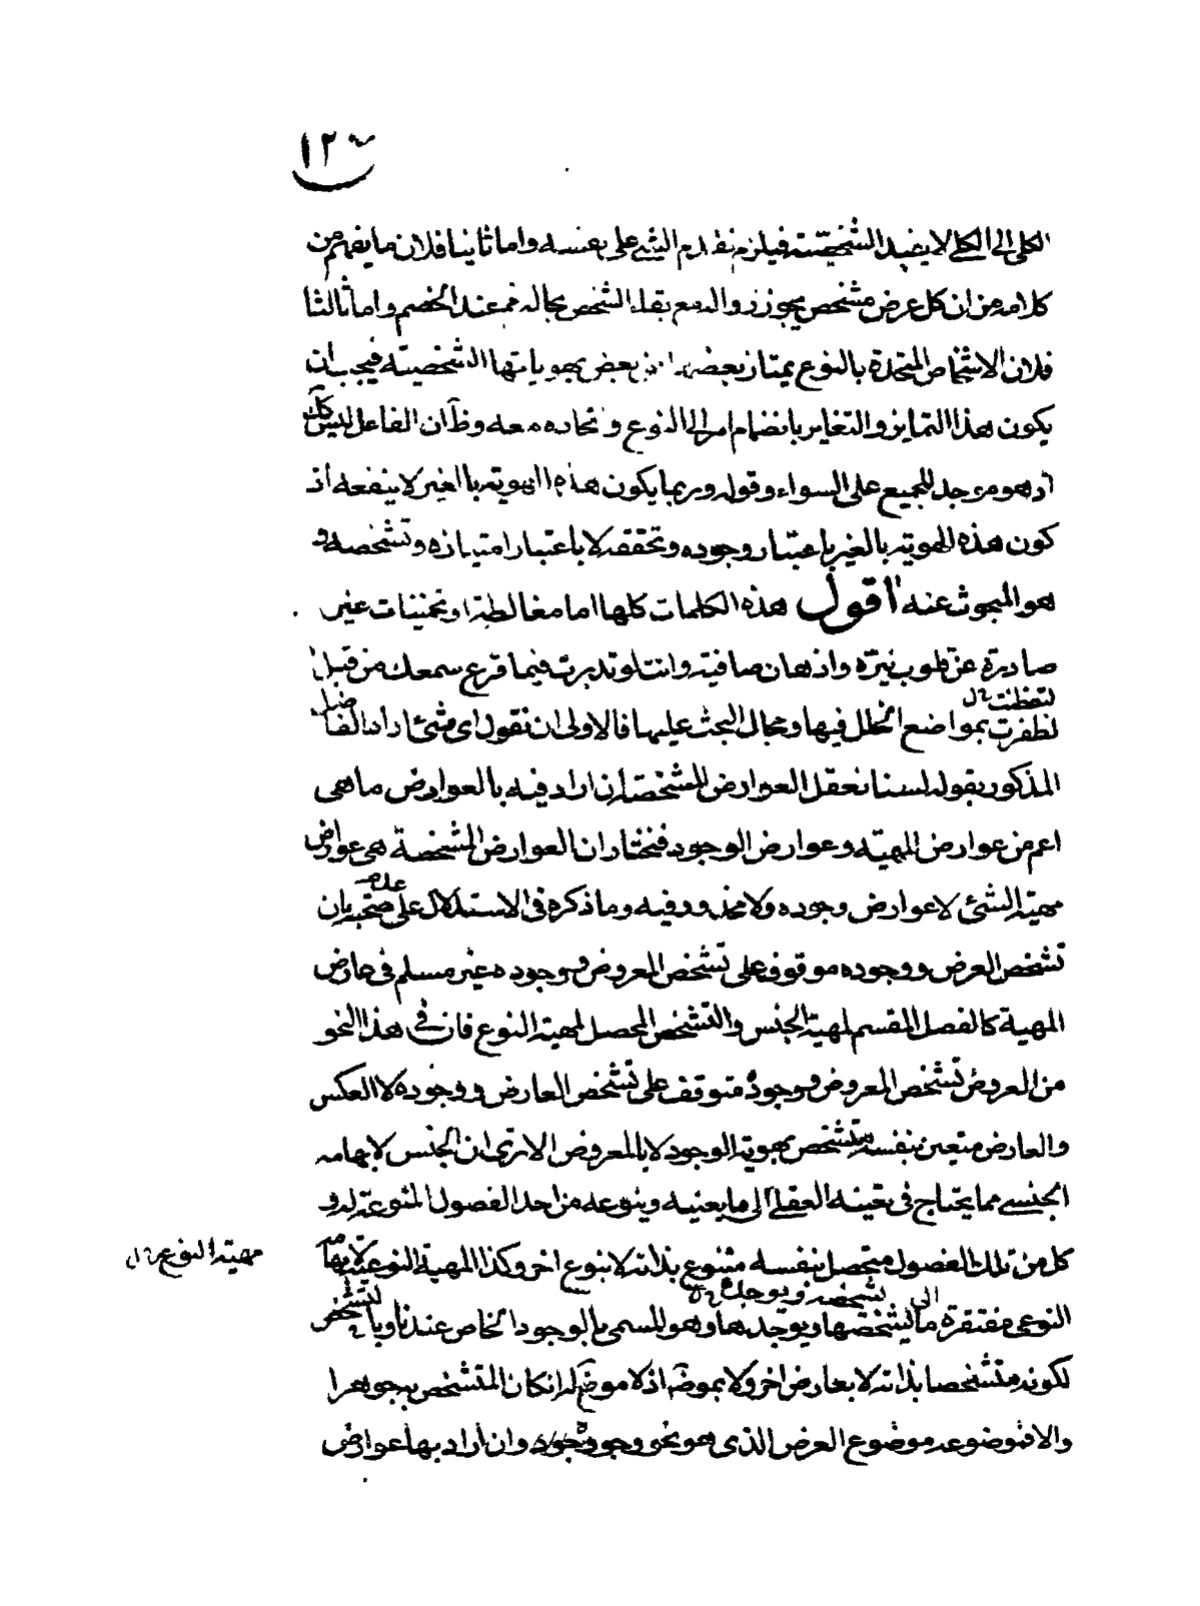 ١٢
الكلى الى الكلى لا يفيد الشخصية فيلزم تقدم الشئ على نفسه واما ثانيا فلان ما يفهم من
كلامه من ان كل عرض مشخص يجوز زواله مع بقاء الشخص بحاله فمم عند الخصم واما ثالثا
فلان الاشخاص المتحدة بالنوع يمتاز بعضها من بعض بهوياتها الشخصية فيجب ان
يكون هذا التمايز والتغاير بانضمام امر الى النوع واتحاده معه وظ ان الفاعل ليس كك
اذ هو موجد للجميع على السواء وقوله وربما يكون هذه الهوية بالغير لا ينفعه اذ
كون هذه الهوية بالغير باعتبار وجوده وتحققه لا باعتبار امتيازه وتشخصه و
هو المبحوث عنه اقول هذه الكلمات كلها اما مغالطة او تخمينات غير
صادرة عن قلوب نيرة واذهان صافية وانت لو تدبرت فيما قرع سمعك من قبل
لتفطنت
لظفرت بمواضع الخلل فيها ومجال البحث عليها فالاولى ان نقول اى شئ اراد الفاضل
المذكور بقوله لسنا نعقل العوارض المشخصة ان اراد فيه بالعوارض ما هى
اعم من عوارض المهية وعوارض الوجود فنختار ان العوارض المشخصة هى عوارض
مهية الشئ لا عوارض وجوده ولا محذور فيه وما ذكره فى الاستدلال على بان
تشخص العرض ووجوده موقوف على تشخص المعروض ووجوده غير مسلم فى عارض
المهية كالفصل المقسم لمهية الجنس والتشخص المحصل لمهية النوع فان فى هذا النحو
من العروض تشخص المعروض ووجوده متوقف على تشخص العارض ووجوده لا العكس
والعارض متعين بنفسه متشخص بهوية الوجود لا بالمعروض الا ترى ان الجنس لابهامه
الجنسى مما يحتاج فى تعينه العقلى الى ما يعينه وينوعه من احد الفصول المنوعة له و
كل من تلك الفصول متحصل بنفسه متنوع بذاته لا بنوع اخر وكذا المهية النوعية لابهامه
مهية النوع
الى تشخصه ويوجده
النوعى مفتقرة ما يشخصها ويوجدها وهو المسمى بالوجود الخاص عندنا وبالتشخص
لكونه متشخصا بذاته لا بعارض اخر ولا بموضع اذ لا موضع له ان كان المتشخص به جوهرا
والا فموضوعه موضوع العرض الذى هو نحو وجوده وان اراد بها عوارض